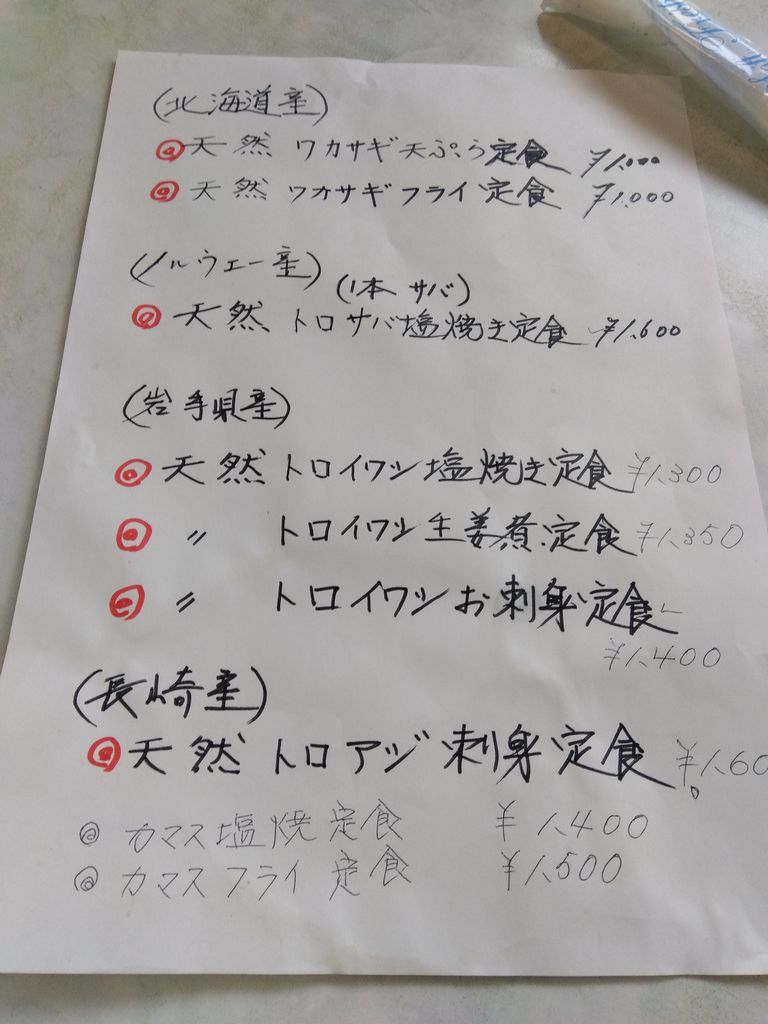 (北海道産)
◎天然 ワカサギ天ぷら定食 ¥1,000
◎天然 ワカサギフライ定食 ¥1,000
(ノルウェー産)
(1本サバ)
◎天然 トロサバ塩焼き定食 ¥1,600
(岩手県産)
◎天然 トロイワシ塩焼き定食 ¥1,300
◎〃 トロイワシ生姜煮定食 ¥1,350
◎〃 トロイワシお刺身定食
¥1,400
(長崎産)
◎天然 トロアジ刺身定食 ¥1,600
◎カマス塩焼定食 ¥1,400
◎カマスフライ定食 ¥1,500